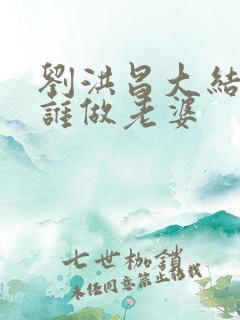 劉洪昌大結
誰做老婆
七世枷鎖
未经同意禁止转载